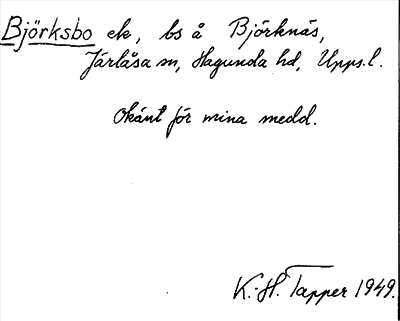 Björksbo ek, bs å Björknäs,
Järlåsa sn, Hagunda hd, Upps. l.
Okänt för mina medd.
K.-H. Tapper 1949.